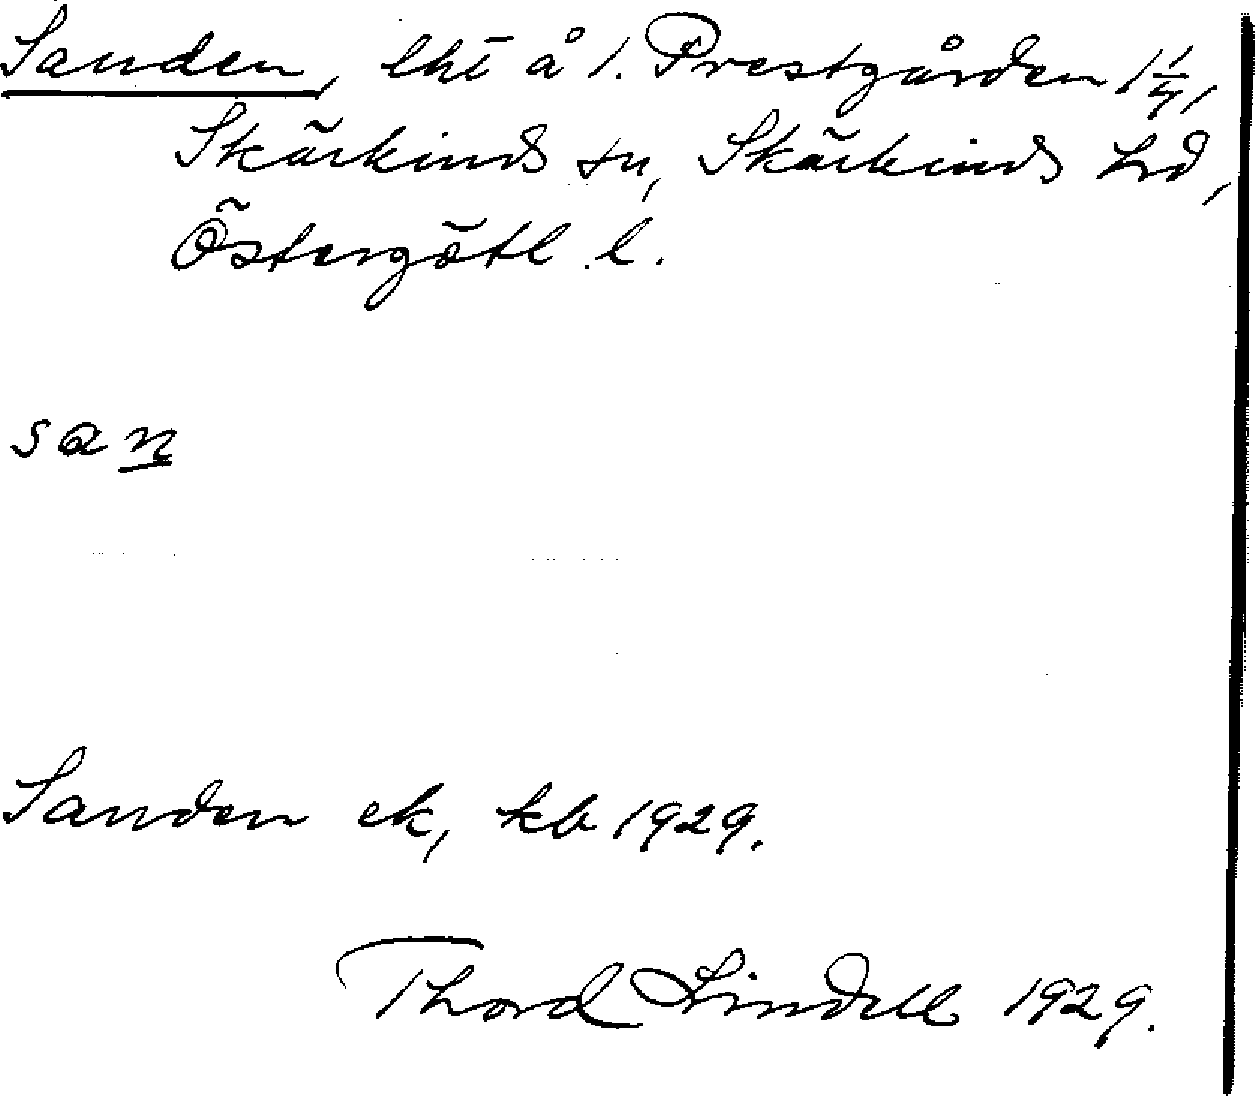 Sanden, lht å 1. Prestgården 1 1/4,
Skärkinds sn, Skärkinds hd,
Östergötl. l.
san
Sanden ek, kb 1929.
Thord Lindell 1929.